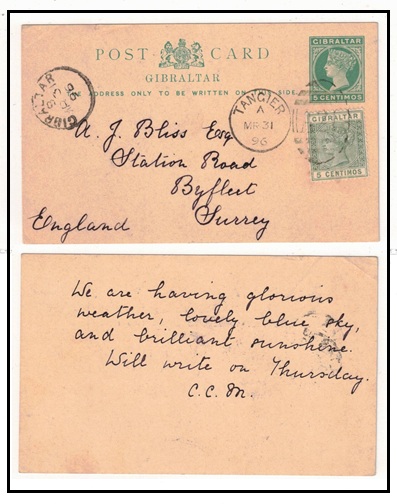 POST CARD
GIBRALTAR
ADDRESS ONLY TO BE WRITTEN ON SIDE
GIBRALTAR
5 CENTIMOS
GIBRALTAR
96
TANGIER
A
MR 31
96
GIBRALTAR
5 CENTIMOS
A. J. Bliss Esq
Station Road
Byfleet
Surrey
England
We are having glorious
weather, lovely blue sky,
and brilliant sunshine.
Will write on Thursday.
C. C. M.